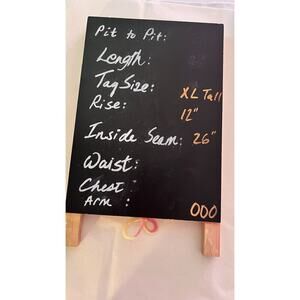 Pit to Pit:
Length:
Tag Size: XL Tall
Rise: 12"
Inside Seam: 26"
Waist:
Chest
Arm : 000